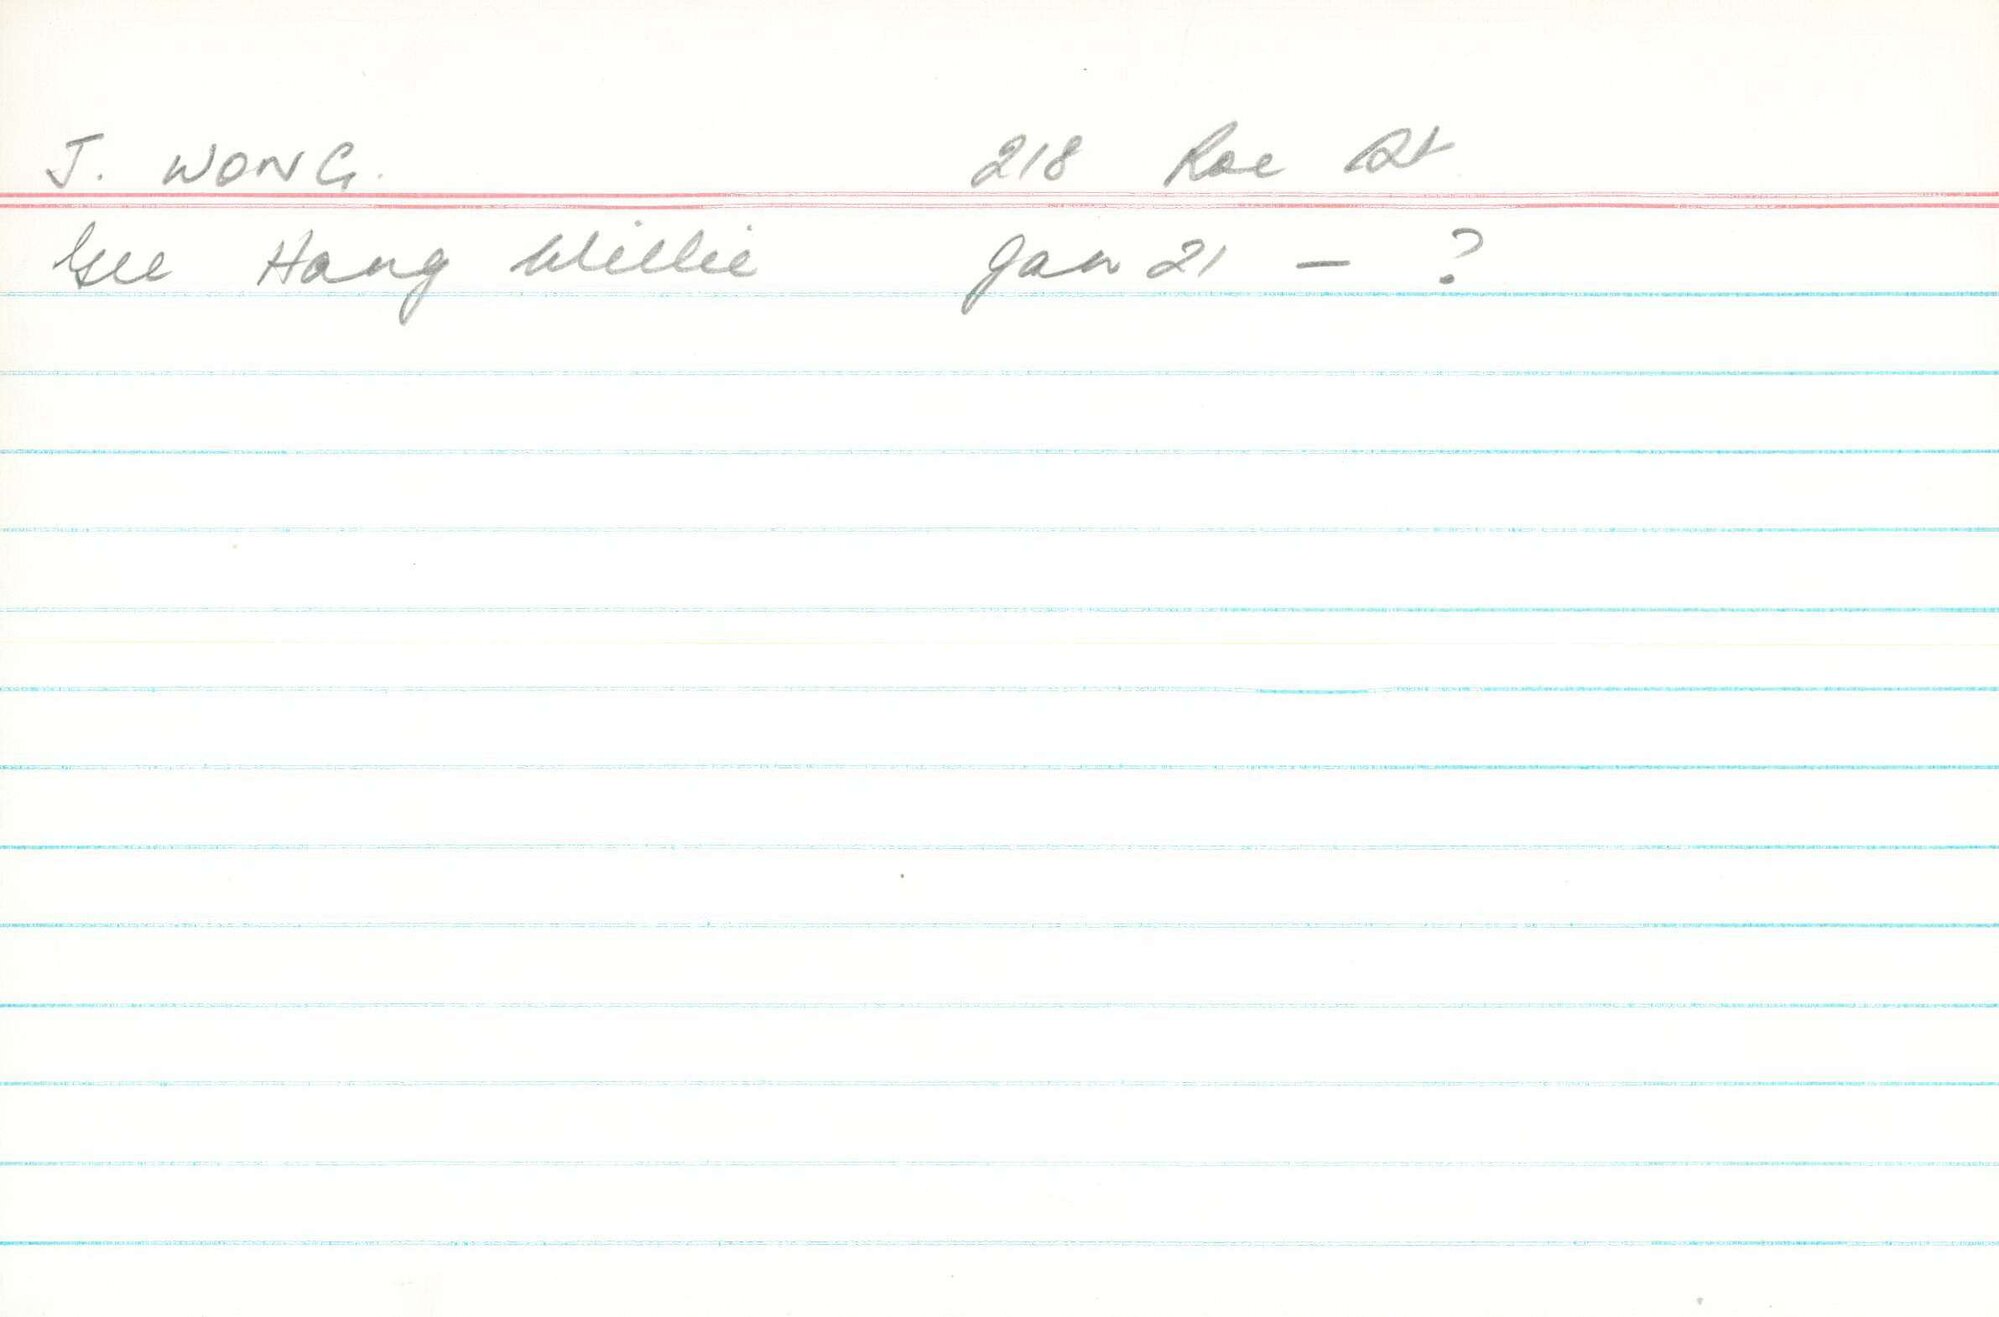 J. WONG. 218 Roe St
Gee Hong Willie Jan 21 - ?